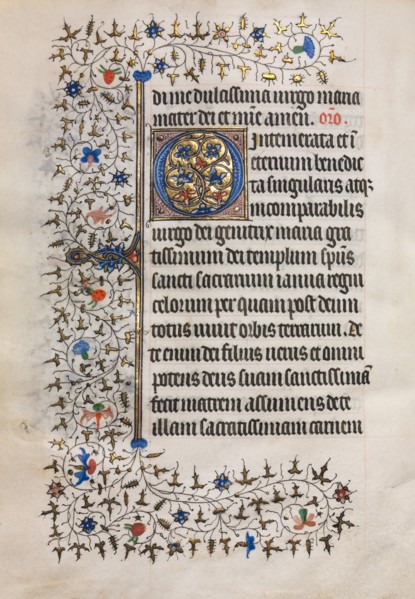 di me dulcissima uirgo maria
mater dei et mīe amen. orō.
O Intemerata et ī
eternum benedic
ta singularis atq;
incomparabilis
uirgo dei genitrix maria gra
tissimum dei templum spūs
sancti sacrarium ianua regni
celorum per quam post deum
totus uiuit orbis terrarum. De
te enim dei filius uerus et omni
potens deus suam sanctissimā
fecit matrem assumens de te
illam sacratissimam carnem